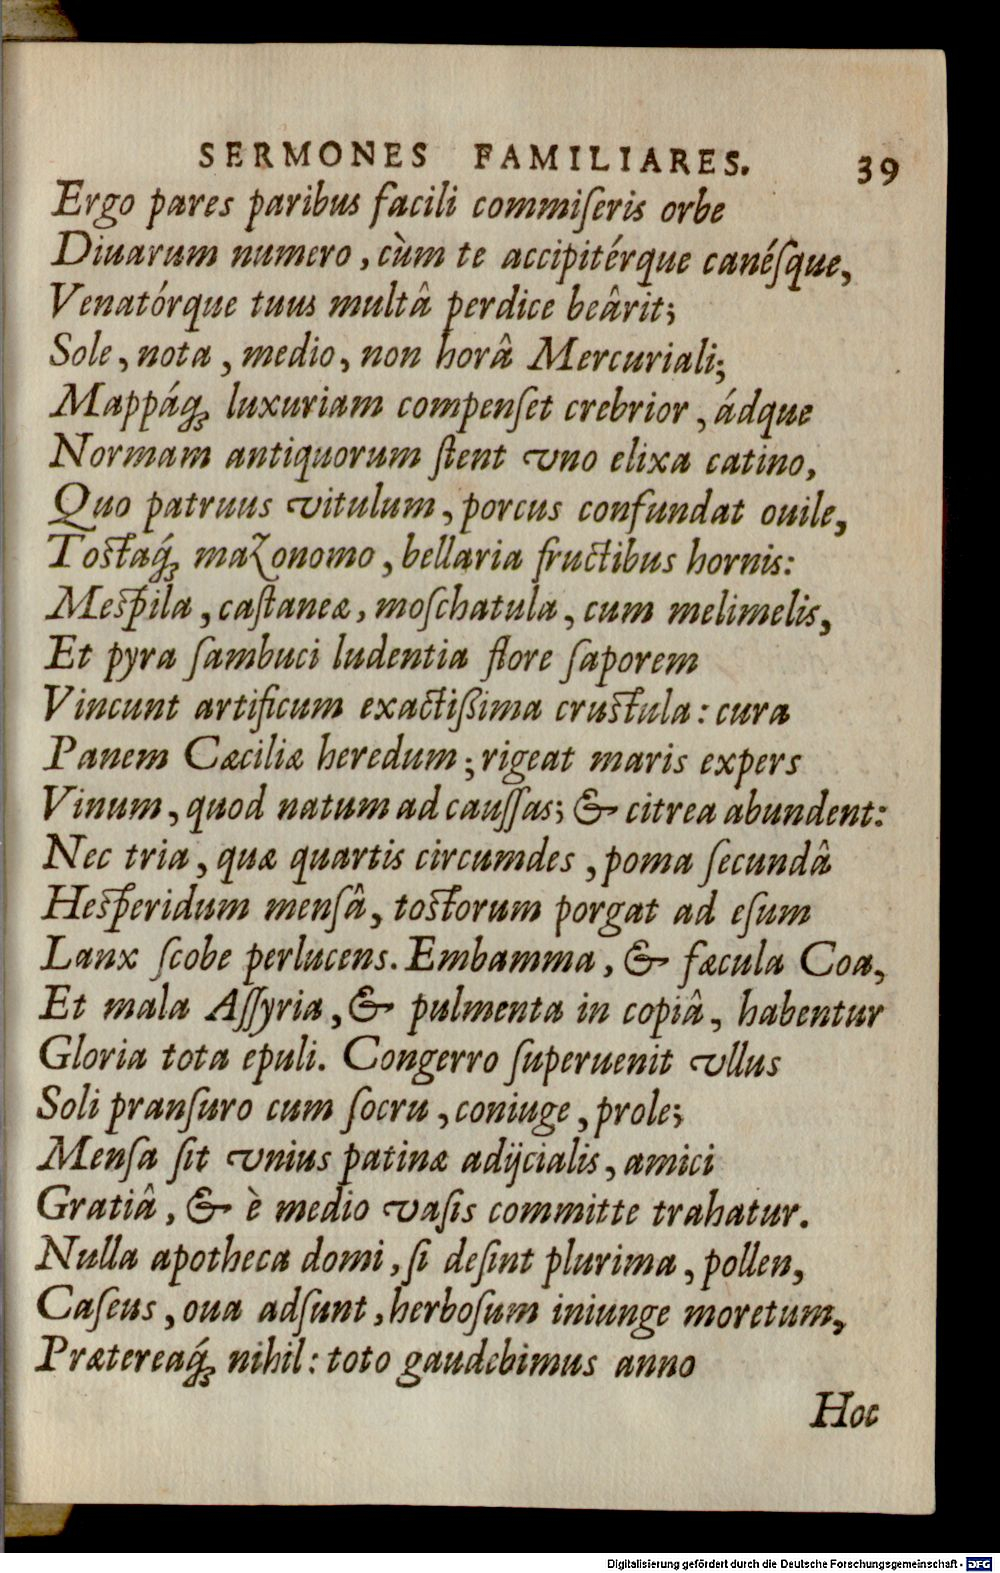 SERMONES FAMILIARES. 39
Ergo pares paribus facili commiſeris orbe
Diuarum numero, cùm te accipitérque canéſque,
Venatórque tuus multâ perdice beârit;
Sole, nota, medio, non horâ Mercuriali;
Mappáq́ꝫ luxuriam compenſet crebrior, ádque
Normam antiquorum ſtent vno elixa catino,
Quo patruus vitulum, porcus confundat ouile,
Toſtaq́ꝫ mazonomo, bellaria fructibus hornis:
Meſpila, caſtaneæ, moſchatula, cum melimelis,
Et pyra ſambuci ludentia flore ſaporem
Vincunt artificum exactißima cruſtula: cura
Panem Cæciliæ heredum; rigeat maris expers
Vinum, quod natum ad cauſſas; & citrea abundent:
Nec tria, quæ quartis circumdes, poma ſecundâ
Heſperidum menſâ, toſtorum porgat ad eſum
Lanx ſcobe perlucens. Embamma, & fæcula Coa,
Et mala Aſſyria, & pulmenta in copiâ, habentur
Gloria tota epuli. Congerro ſuperuenit vllus
Soli pranſuro cum ſocru, coniuge, prole;
Menſa ſit vnius patinæ adijcialis, amici
Gratiâ, & è medio vaſis committe trahatur.
Nulla apotheca domi, ſi deſint plurima, pollen,
Caſeus, oua adſunt, herboſum iniunge moretum,
Prætereaq́ꝫ nihil: toto gaudebimus anno
Hoc
Digitalisierung gefördert durch die Deutsche Forschungsgemeinschaft - DFG